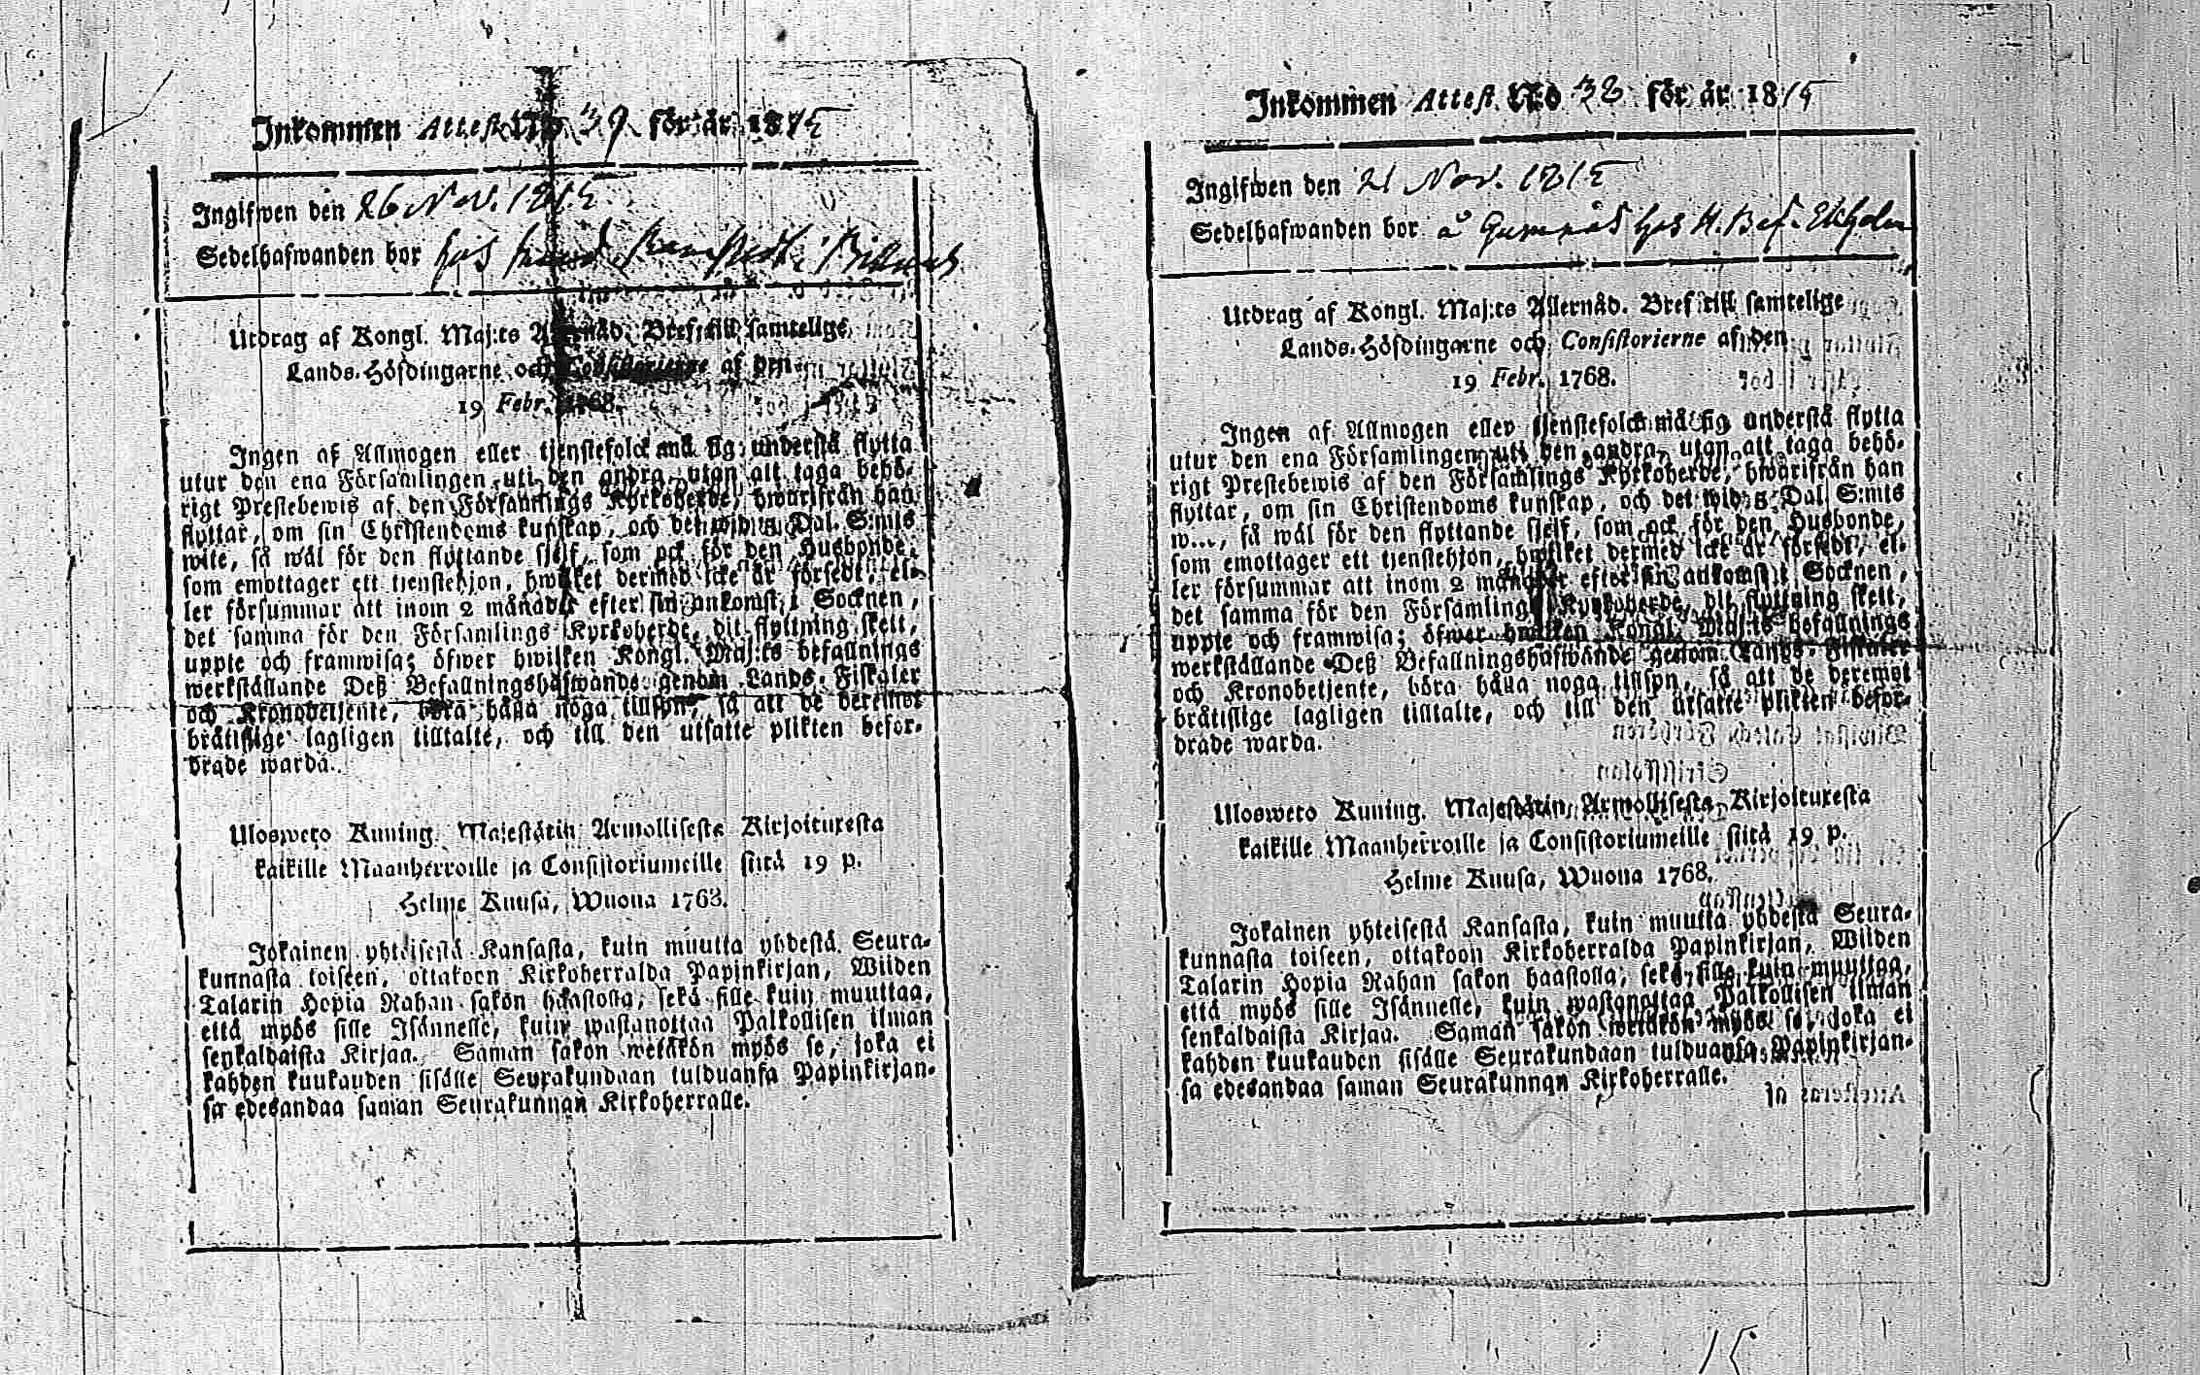 Inkommen Attest No 39 för år 1815
Ingifwen den 26 Nov. 1815
Sedelhafwanden bor hos
Utdrag af Kongl. Maj:ts Allernåd. Bref till samtelige
Lands-Höfdingarne och Consistorierne af den
19 Febr. 1768.
Ingen af Allmogen eller tjenstefolck må sig understå flytta
utur den ena Församlingen uti den andra, utan att taga behö-
rigt Prestebewis af den Församlings Kyrkoherde, hwarifrån han
flyttar, om sin Christendoms kunskap, och det wid 5 Dal. S:mts
wite, så wäl för den flyttande sjelf, som ock för den Husbonde,
som emottager ett tjenstehjon, hwilket dermed icke är försedt, el-
ler försummar att inom 2 månader efter sin ankomst i Socknen,
det samma för den Församlings Kyrkoherde, dit flyttning skett,
uppte och framwisa; öfwer hwilken Kongl. Maj:ts befallnings
werkställande Deß Befallningshafwande genom Lands-Fiskaler
och Kronobetjente, böra hålla noga tillsyn, så att de deremot
bråtislige lagligen tilltalte, och till den utsatte plikten befor-
drade warda.
Ulosweto Kuning. Majestätin Armollisesta Kirjoituxesta
kaikille Maanherroille ja Consistoriumeille siitä 19 p.
Helme Kuusa, Wuona 1768.
Jokainen yhteisestä Kansasta, kuin muutta yhdestä Seura-
kunnasta toiseen, ottakoon Kirkoherralda Papinkirjan, Wiiden
Talarin Hopia Rahan sakon haastolla, sekä sille kuin muuttaa,
että myös sille Isännelle, kuin wastanottaa Palkollisen ilman
senkaldaista Kirjaa. Saman sakon wetäkön myös se, joka ei
kahden kuukauden sisälle Seurakundaan tulduansa Papinkirjan-
sa edesandaa saman Seurakunnan Kirkoherralle.
Inkommen Attest. No 38 för år 1815
Ingifwen den 21 Nov. 1815
Sedelhafwanden bor å Gumnäs hos H. Bef. Ekholm
Utdrag af Kongl. Maj:ts Allernåd. Bref till samtelige
Lands-Höfdingarne och Consistorierne af den
19 Febr. 1768.
Ingen af Allmogen eller tjenstefolck må sig understå flytta
utur den ena Församlingen uti den andra, utan att taga behö-
rigt Prestebewis af den Församlings Kyrkoherde, hwarifrån han
flyttar, om sin Christendoms kunskap, och det wid 5 Dal. S:mts
w..., så wäl för den flyttande sjelf, som ock för den Husbonde,
som emottager ett tjenstehjon, hwilket dermed icke är försedt, el-
ler försummar att inom 2 månader efter sin ankomst i Socknen,
det samma för den Församlings Kyrkoherde, dit flyttning skett,
uppte och framwisa; öfwer hwilken Kongl. Maj:ts befallnings
werkställande Deß Befallningshafwande genom Lands-Fiskaler
och Kronobetjente, böra hålla noga tillsyn, så att de deremot
bråtislige lagligen tilltalte, och till den utsatte plikten befor-
drade warda.
Ulosweto Kuning. Majestätin Armollisesta Kirjoituxesta
kaikille Maanherroille ja Consistoriumeille siitä 19 p.
Helme Kuusa, Wuona 1768.
Jokainen yhteisestä Kansasta, kuin muutta yhdestä Seura-
kunnasta toiseen, ottakoon Kirkoherralda Papinkirjan, Wiiden
Talarin Hopia Rahan sakon haastolla, sekä sille kuin muuttaa,
että myös sille Isännelle, kuin wastanottaa Palkollisen ilman
senkaldaista Kirjaa. Saman sakon wetäkön myös se, joka ei
kahden kuukauden sisälle Seurakundaan tulduansa Papinkirjan-
sa edesandaa saman Seurakunnan Kirkoherralle.
15